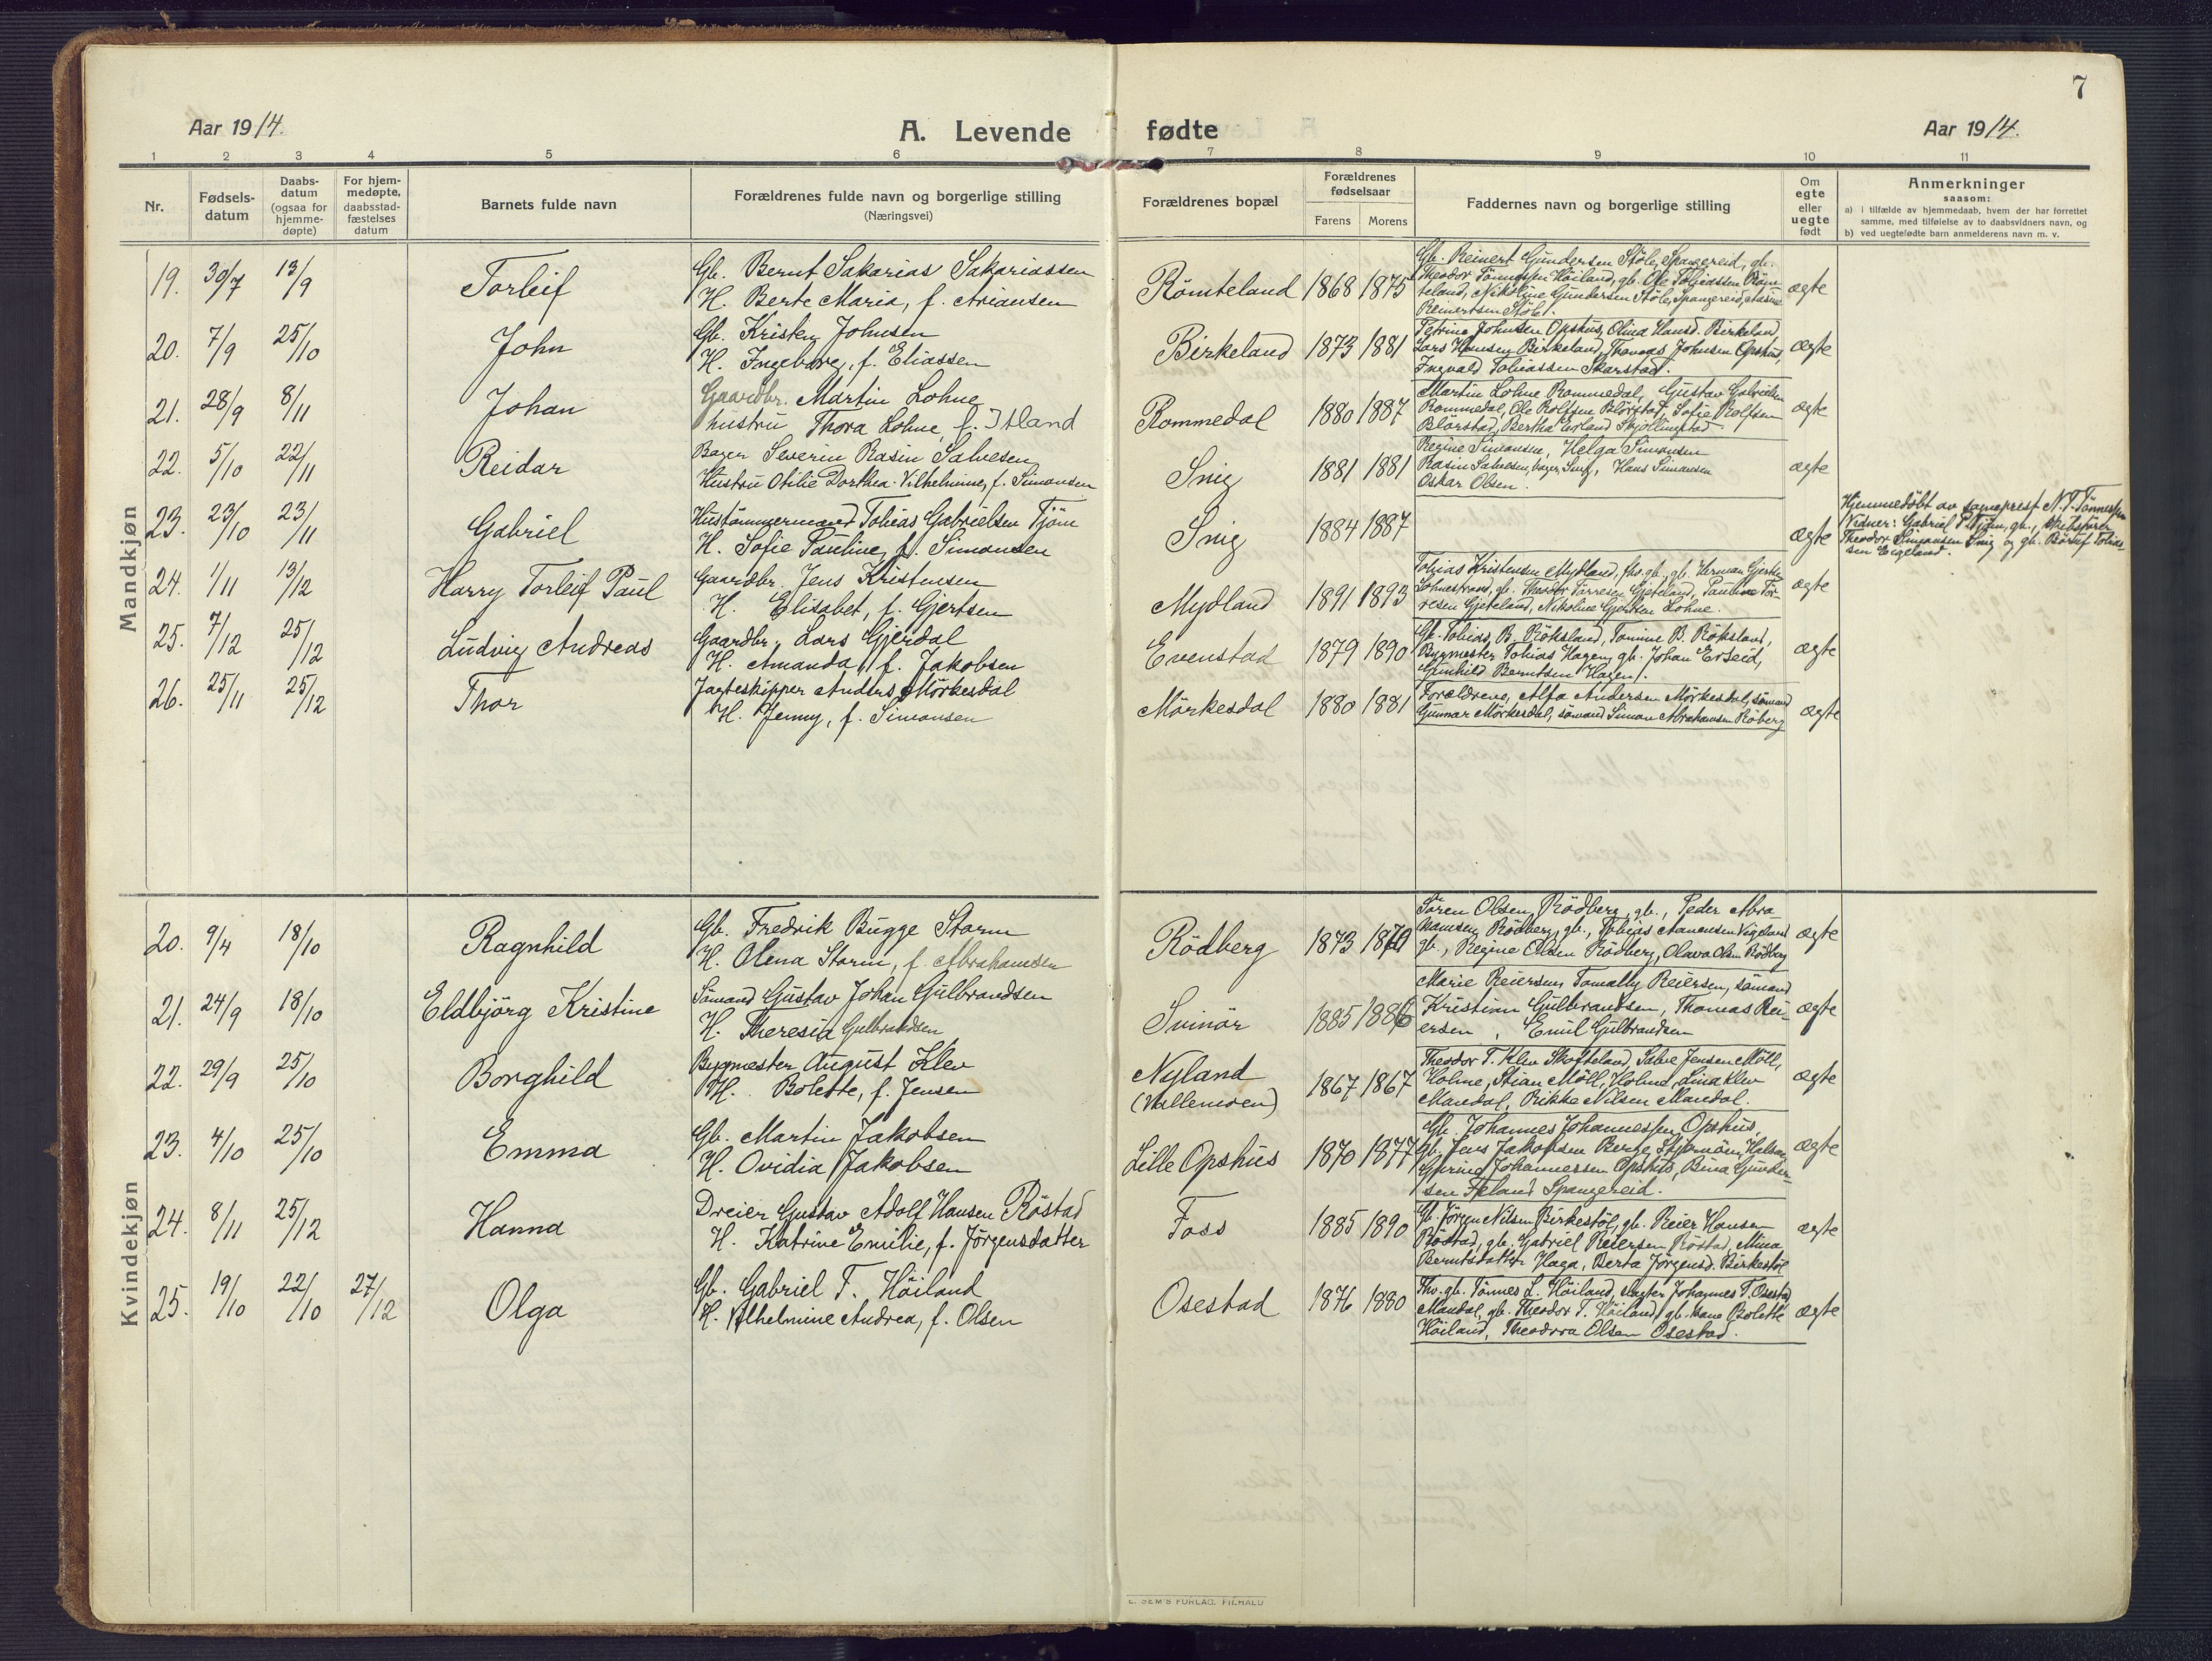 7
Aar 1914.
A. Levende fødte
Aar 1914.
1 2 3 4 5 6 7 8 9 10 11
Nr.
Fødsels-
datum
Daabs-
datum
(ogsaa for
hjemme-
døpte)
For hjem-
medøpte,
daabsstad-
fæstelses
datum
Barnets fulde navn
Forældrenes fulde navn og borgerlige stilling
(Næringsvei)
Forældrenes bopæl
Forældrenes
fødselsaar
Farens Morens
Faddernes navn og borgerlige stilling
Om
egte
eller
uegte
født
Anmerkninger
saasom:
a) i tilfælde av hjemmedaab, hvem der har forrettet
samme, med tilføielse av to daabsvidners navn, og
b) ved uegtefødte barn anmelderens navn m. v.
Mandkjøn
19. 30/7 13/9 Torleif
Gb. Bernt Sakarias Sakariassen
H. Berte Maria, f. Ariansen
Rømteland 1868 1875
Gb. Reinert Gundersen Støle, Spangereid, gb.
Theodor Tønnessen Høiland, gb. Ole Tobiassen Røm-
teland, Nikoline Gundersen Støle, Spangereid,
Reinertsen Støle.
ægte
20. 7/9 25/10 John
Gb. Kristen Johnsen
H. Ingeborg, f. Eliassen
Birkeland 1873 1881
Petrine Johnsen Opshus, Olina Hansd. Birkeland
Lars Hansen Birkeland, Thomas Johnsen Opshus,
Ingvald Tobiassen Skarstad.
ægte
21. 28/9 8/11 Johan
Gaardbr. Martin Lohne
hustru Thora Lohne, f. Itland
Rommedal 1880 1887
Martin Lohne Rommedal, Gustav Gabrielsen
Rommedal, Ole Rolfsen Blørstad, Sofie Rolfsen
Blørstad, Bertha Erland Skjøllingstad
ægte
22. 5/10 22/11 Reidar
Bager Severin Rasin Salvesen
Hustru Otilie Dorthea Vilhelmine, f. Simonsen
Snig 1881 1881
Regine Simonsen, Helga Simonsen
Rasin Salvesen, bager, Snig, Hans Simonsen
Oskar Olsen.
ægte
23. 23/10 23/11 Gabriel
Hustømmermand Tobias Gabrielsen Tjøm
H. Sofie Pauline, f. Simonsen
Snig 1884 1887
ægte
Hjemmedøbt av sogneprest N. T. Tønnessen
Vidner: Gabriel T. Tjøm, gb., skibsfører
Theodor Simonsen Snig og gb. Børuf Tobias-
sen Eigeland.
24. 1/11 13/12 Harry Torleif Paul
Gaardbr. Jens Kristensen
H. Elisabet, f. Gjertsen
Mydland 1891 1893
Tobias Kristensen Mydland, fhv. gb., gb. Herman Gjertsen
Lohnestrand, gb. Theodor Tørresen Gjeteland, Pauline Tør-
resen Gjeteland, Nikoline Gjertsen Lohne.
ægte
25. 7/12 25/12 Ludvig Andreas
Gaardbr. Lars Gjerdal
H. Amanda, f. Jakobsen
Evenstad 1879 1890
Gb. Tobias B. Røksland, Tomine B. Røksland,
Bygmester Tobias Hagen, gb. Johan Erseid,
Gunhild Berntsen Hagen.
ægte
26. 25/11 25/12 Thor
Jagteskipper Anders Mørkesdal
H. Jenny, f. Simonsen
Mørkesdal 1880 1881
Forældrene, Alfa Andersen Mørkesdal, sømand
Gunnar Mørkesdal, sømand Simon Abrahamsen Røberg
ægte
Kvindekjøn
20. 9/4 18/10 Ragnhild
Gb. Fredrik Bugge Storm
H. Olena Storm, f. Abrahamsen
Rødberg 1873
Søren Olsen Rødberg, gb., Peder Abra-
hamsen Rødberg, gb., Tobias Aanensen Vigeland
gb., Regine Olsen Rødberg, Olava Olsen Rødberg
ægte
21. 24/9 18/10 Eldbjörg Kristine
Sømand Gustav Johan Gulbrandsen
H. Theresia Gulbrandsen
Svinør 1885 1886
Marie Reiersen, Tomally Reiersen, sømand
Kristian Gulbrandsen, Thomas Rei-
ersen, Emil Gulbrandsen
ægte
22. 29/9 25/10 Borghild
Bygmester August Klev
H. Bolette, f. Jensen
Nyland
(Vallemoen) 1867 1867
Theodor T. Klev Skofteland, Salve Jensen Møll,
Holme, Stian Møll, Holme, Lina Klev
Mandal, Rikke Nilsen Mandal.
ægte
23. 4/10 25/10 Emma
Gb. Martin Jakobsen
H. Ovidia Jakobsen
Lille Opshus 1870 1877
Gb. Johannes Johannessen Opshus,
gb. Jens Jakobsen Berge, Stjernøen, Halsaa
Gurine Johannessen Opshus, Bina Gunder-
sen Føland Spangereid.
ægte
24. 8/11 25/12 Hanna
Dreier Gustav Adolf Hansen Röstad
H. Katrine Emilie, f. Jörgensdatter
Foss 1885 1890
Gb. Jørgen Nilsen Birkestøl, gb. Reier Hansen
Røstad, gb. Gabriel Reiersen Røstad, Mina
Berntsdatter Haga, Berta Jørgensd. Birkestøl
ægte
25. 19/10 22/10 27/12 Olga
Gb. Gabriel T. Høiland
H. Vilhelmine Andrea, f. Olsen
Osestad 1876 1880
Fhv. gb. Tønnes L. Høiland, slagter Johannes T. Osestad
Mandal, gb. Theodor T. Høiland, gb. kone Bolette
Høiland, Theodora Olsen Osestad.
ægte
E. SEM'S FORLAG, FR.HALD